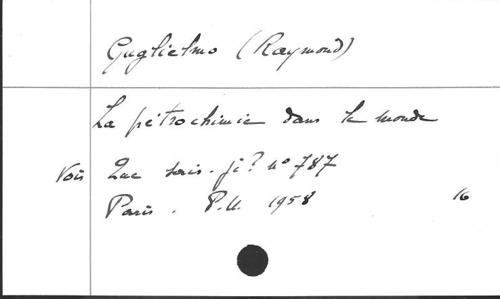 Guglielmo (Raymond)
La pétrochimie dans le monde
Voir Que sais-je? n° 787
Paris. P.U. 1958 16